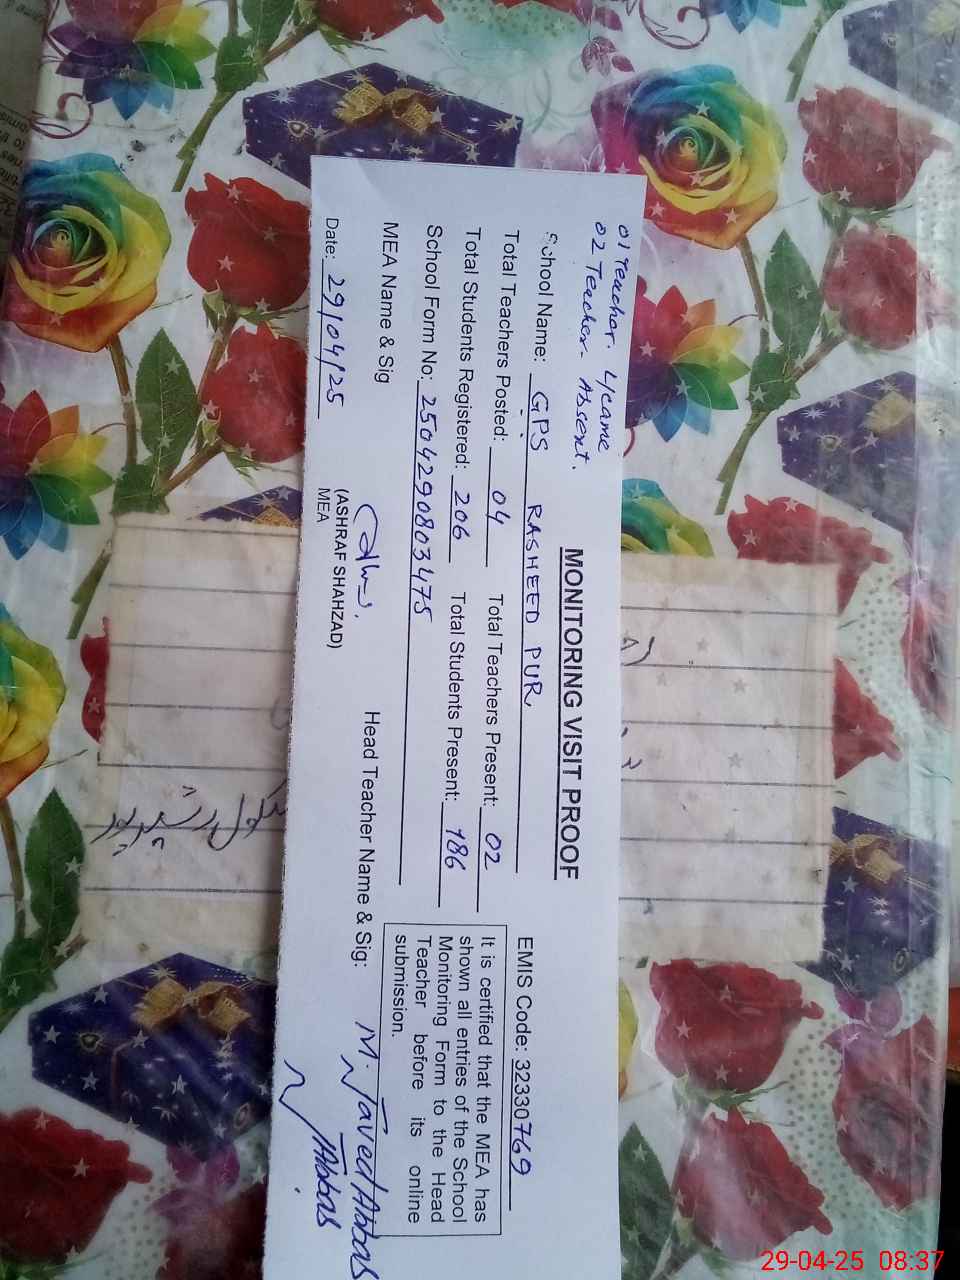 01 Teacher. L/came
02 Teacher. Absent.
MONITORING VISIT PROOF
School Name: GPS RASHEED PUR
EMIS Code: 32330769
Total Teachers Posted: 04 Total Teachers Present: 02
Total Students Registered: 206 Total Students Present: 186
School Form No: 2504290803475
It is certified that the MEA has
shown all entries of the School
Monitoring Form to the Head
Teacher before its online
submission.
MEA Name & Sig
(ASHRAF SHAHZAD)
MEA
Head Teacher Name & Sig: M. Javed Abbas
Abbas
Date: 29/04/25
29-04-25 08:37